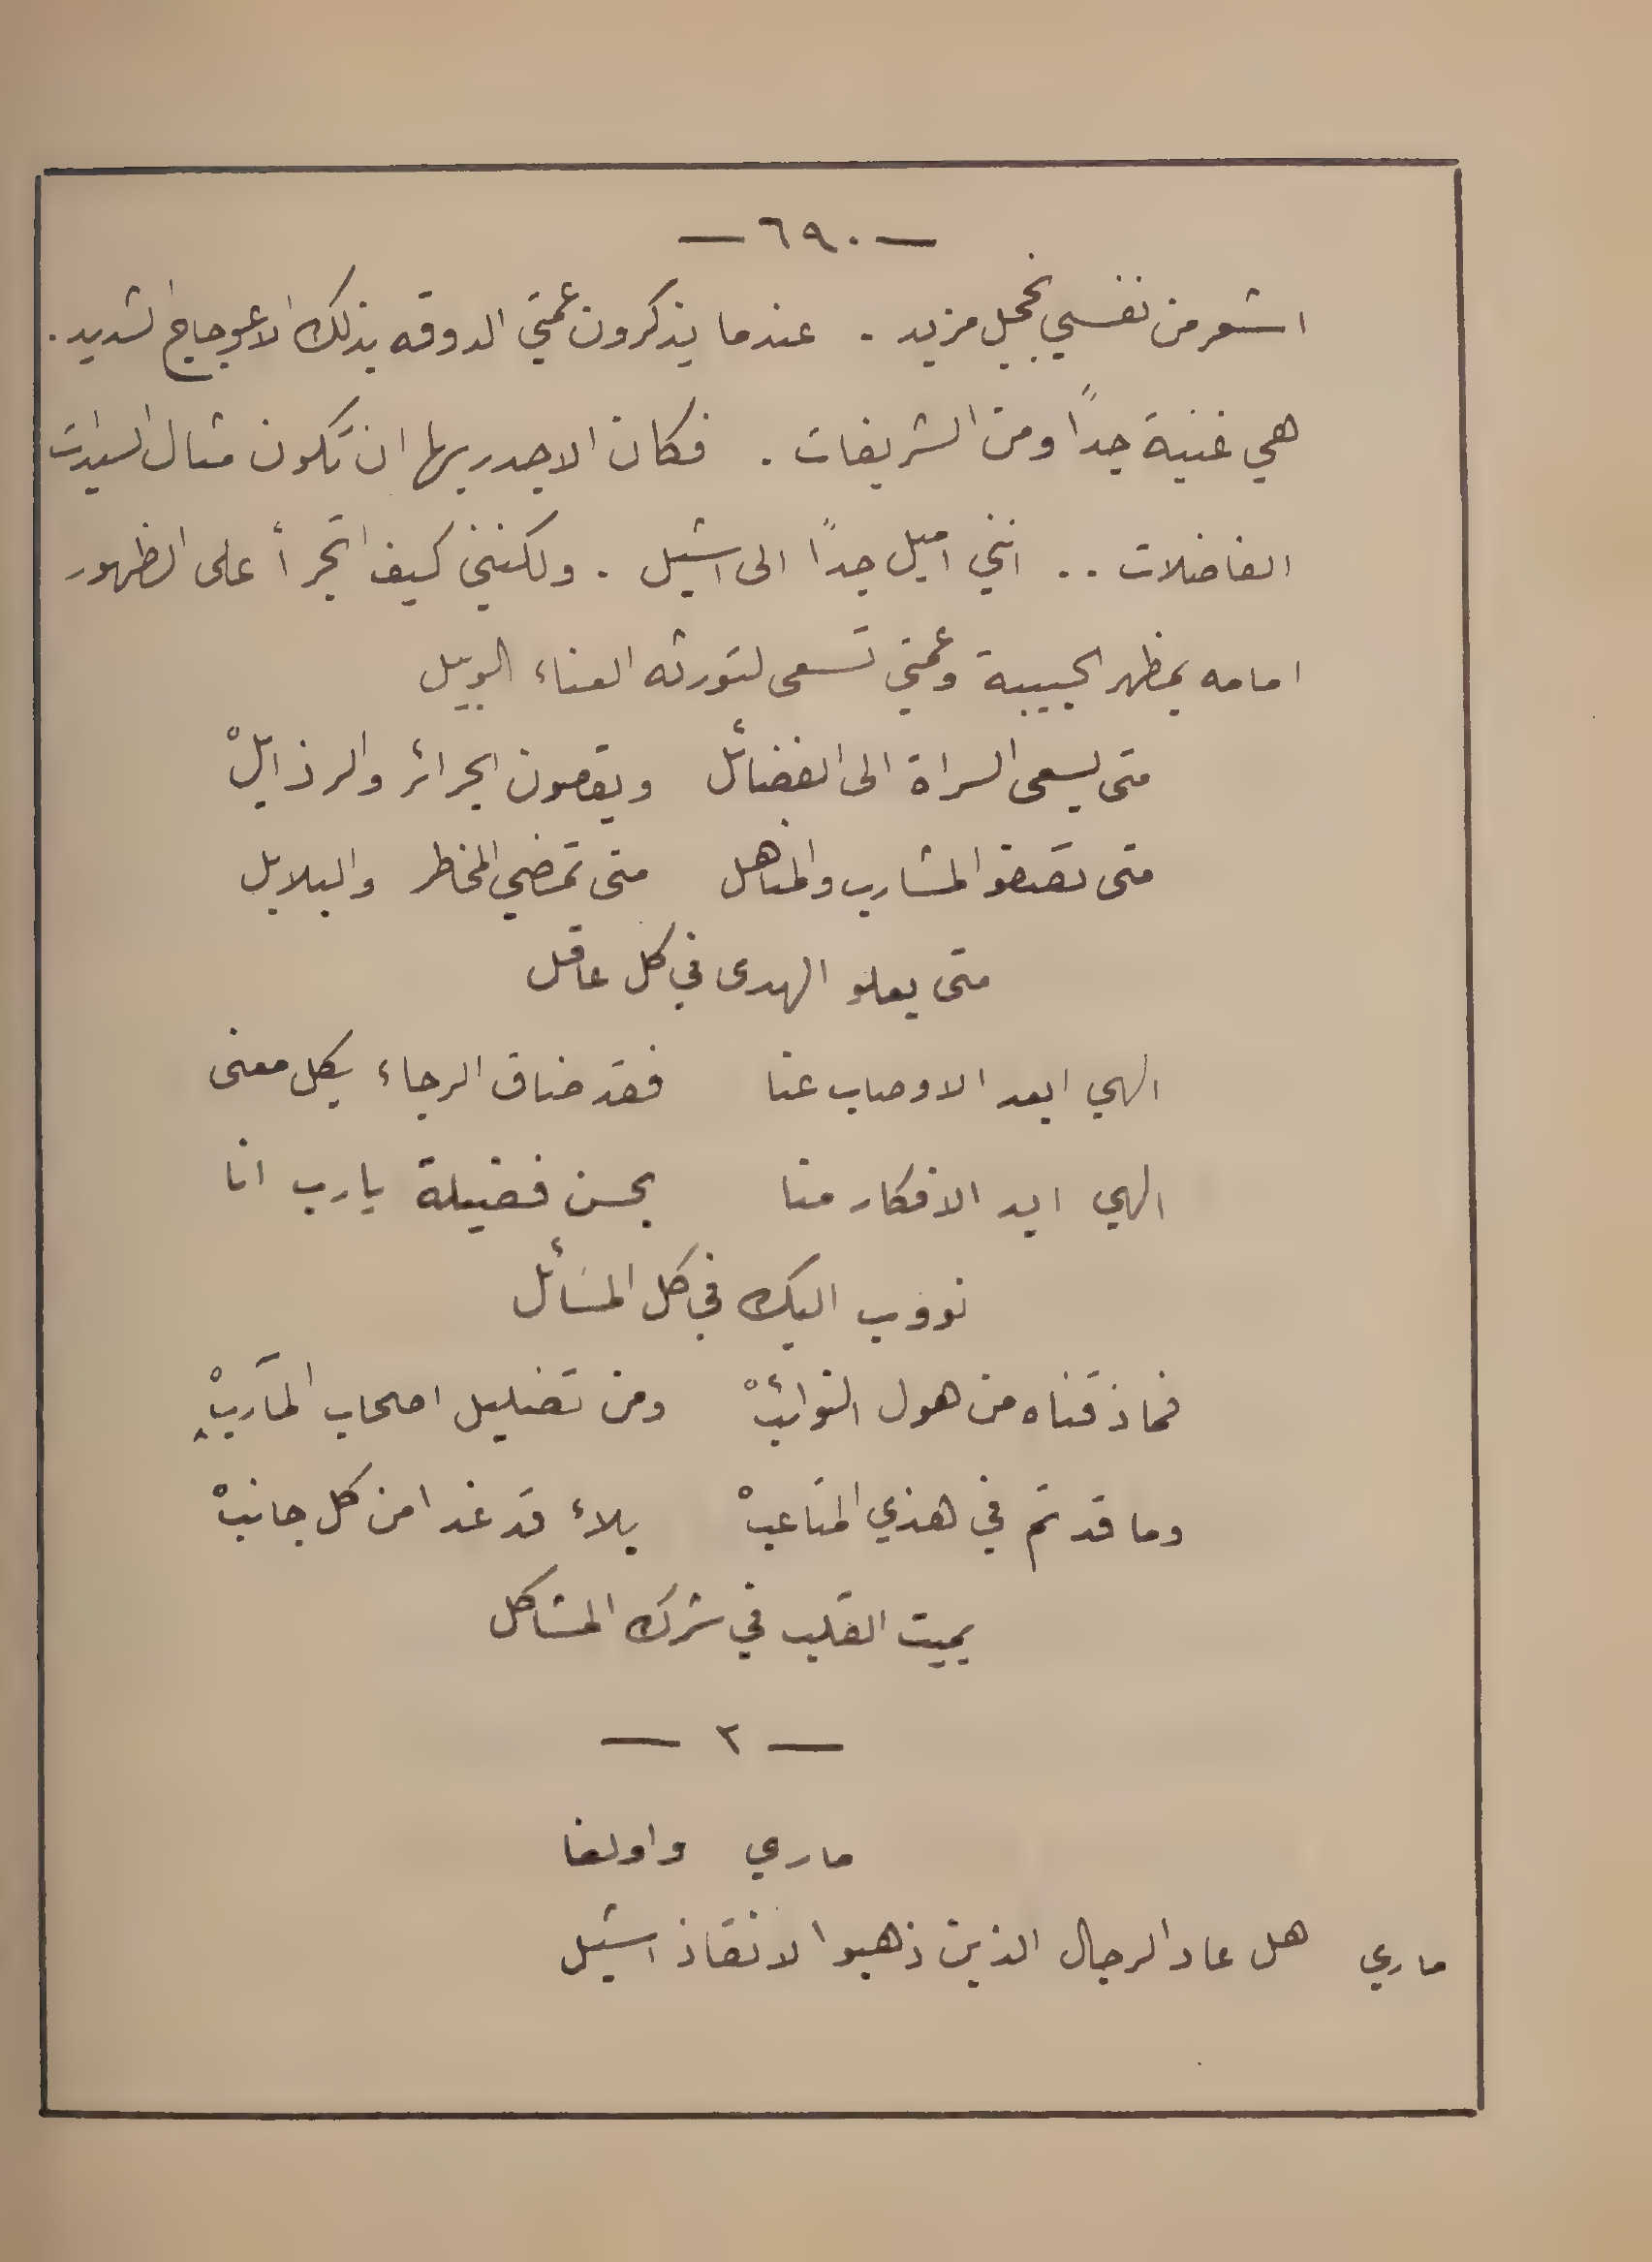 — ٦٩٠ —
اشعر من نفسي بخجل مزيد . عندما يذكرون عمتي الدوقه بذلك الاعوجاج الشديد .
هي غنية جداً ومن الشريفات . فكان الاجدر بها ان تكون مثال السيدات
الفاضلات .. انني اميل جداً الى اشيل . ولكنني كيف اتجرأ على الظهور
امامه بمظهر الحبيبة وعمتي تسعى لتورثه العناء الوبيل
متى يسعى السراة الى الفضائل ويقصون الجرائر والرذايلْ
متى تصفو المشارب والمناهل متى تمضي المخاطر والبلابل
متى يعلو الهدى في كل عاقل
الهي ابعد الاوصاب عنا فقد ضاق الرجاء بكل معنى
الهي ايد الافكار منا بحسن فضيلة يارب انا
نؤوب اليك في كل المسَائل
فما ذقناه من هول النوائبْ ومن تضليل اصحاب المآربْ
وما قد تم في هذي المتاعبْ بلاء قد غدا من كل جانبْ
يميت القلب في شرك المشاكل
— ٢ —
ماري واولغا
ماري هل عاد الرجال الذين ذهبوا لانقاذ اشيل